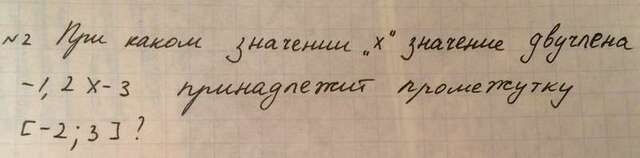 №2 При каком значении „х" значение двучлена
-1,2 х-3 принадлежит промежутку
[-2; 3] ?